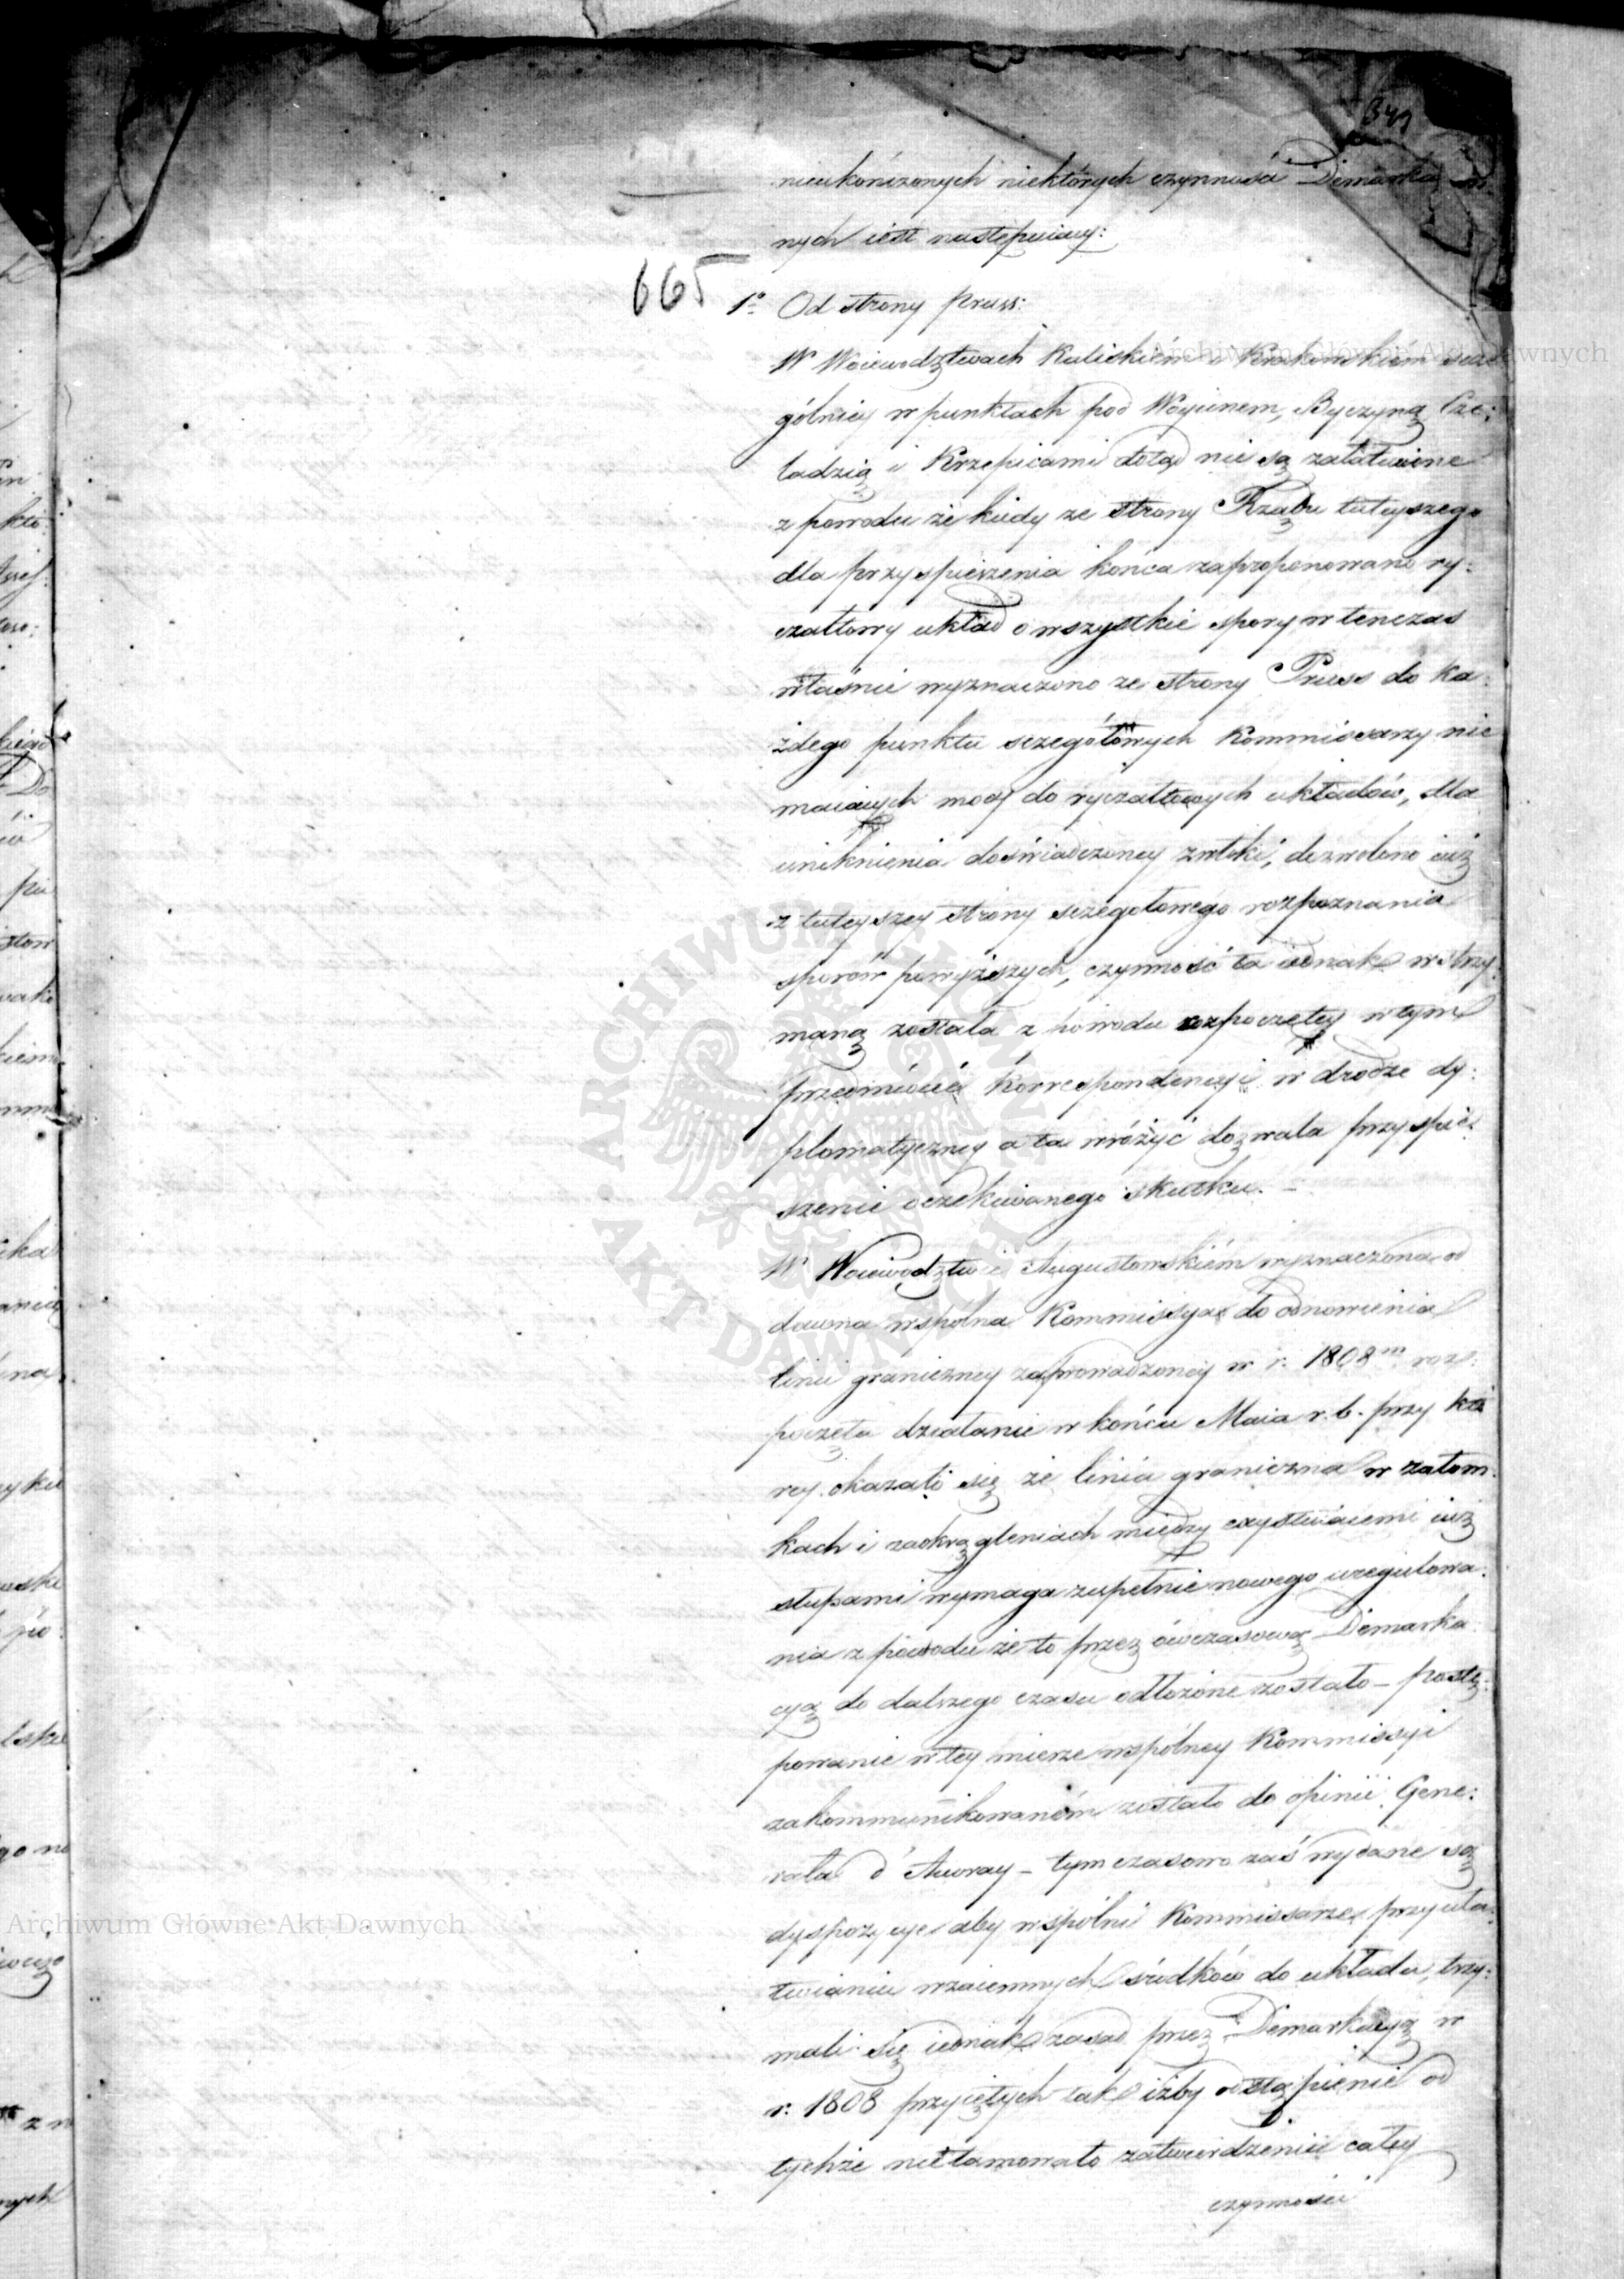 341
nieukończonych niektórych czynności Demarka
nych iest następuiący:
665
1o Od strony Pruss:
W Woiewodztwach Kaliskiém i Krakowskiém scze
gólniey w punktach pod Wóycinem, Byczyną Cze:
ladzią i Krzepicami dotąd nie są załatwione
z powodu że kiedy ze strony Rządu tuteyszego
dla przyspieszenia końca zaproponowano ry:
czałtowy układ o wszystkie spory w tenczas
właśnie wyznaczono ze strony Pruss do ka:
żdego punktu sczegółowych Kommissarzy nie
maiących mocy do ryczałtowych układów, dla
uniknienia doświadczoney zwłoki, dozwolono iuż
z tuteyszey strony sczegołowego rozpoznania
sporów powyższych, czynność ta iednak wstrzy:
maną została z powodu rozpoczętey w tym
przedmiocie korrespondencyi w drodze dy:
plomatyczney a ta wróżyć dozwala przyspie:
szenie oczekiwanego skutku. –
W Woiewodztwie Augustowskiém wyznaczona od
dawna wspólna Kommissya do odnowienia
linii graniczney zaprowadzoney w r: 1808m roz:
poczęła działanie w końcu Maia r. b. przy któ
rey okazało się że linia graniczna w załom:
kach i zaokrągleniach między exystuiącemi iuż
słupami wymaga zupełnie nowego uregulowa:
nia z powodu że to przez ówczasową Demarka:
cyą do dalszego czasu odłożone zostało – postę:
powanie w tey mierze wspólney Kommissyi
zakommunikowaném zostało do opinii Gene:
rała d'Auvray – tymczasowo zaś wydane są
dyspozycye aby wspólni Kommissarze przy uła:
twianiu wzaiemnych środków do układu, trzy:
mali się iednak zasad przez Demarkacyą w
r: 1808 przyiętych tak iżby odstąpienie od
tychże nie tamowało zatwierdzenia całey
czynności
Archiwum Główne Akt Dawnych
Archiwum Główne Akt Dawnych
ARCHIWUM GŁÓWNE AKT DAWNYCH